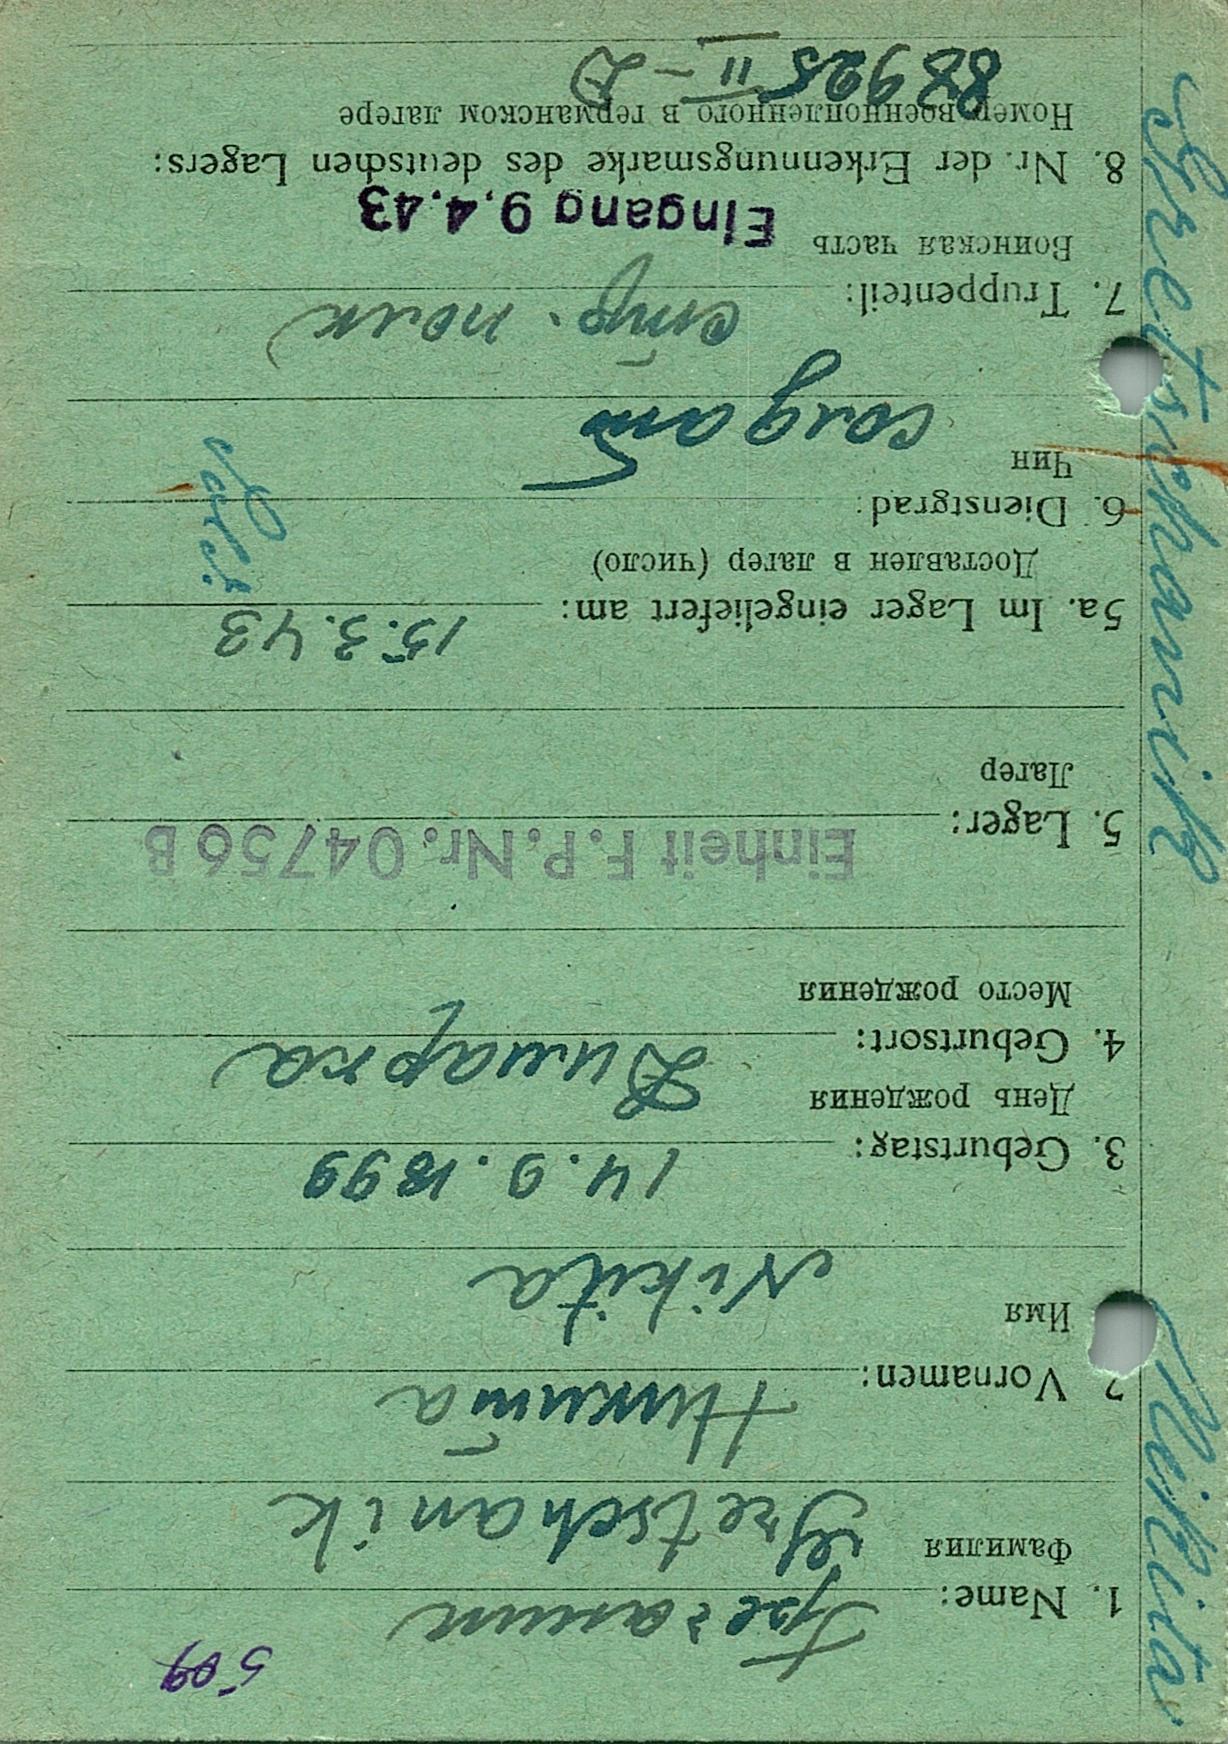 509
1. Name: Гречаник
Фамилия Gretschanik
2 Vornamen: Никита
Имя Nikita
3. Geburtstag: 14.9.1899
День рождения
4. Geburtsort: Димарка
Место рождения
5. Lager: Einheit F.P.Nr. 04756 B
Лагер
5a. Im Lager eingeliefert am: 15.3.43
Доставлен в лагер (число)
6. Dienstgrad:
Чин солдат
7. Truppenteil: стр. полк
Воинская часть Eingang 9.4.43
8. Nr. der Erkennungsmarke des deutschen Lagers:
Номер военнопленного в германском лагере
88925 II-D
Gretschanik Nikita